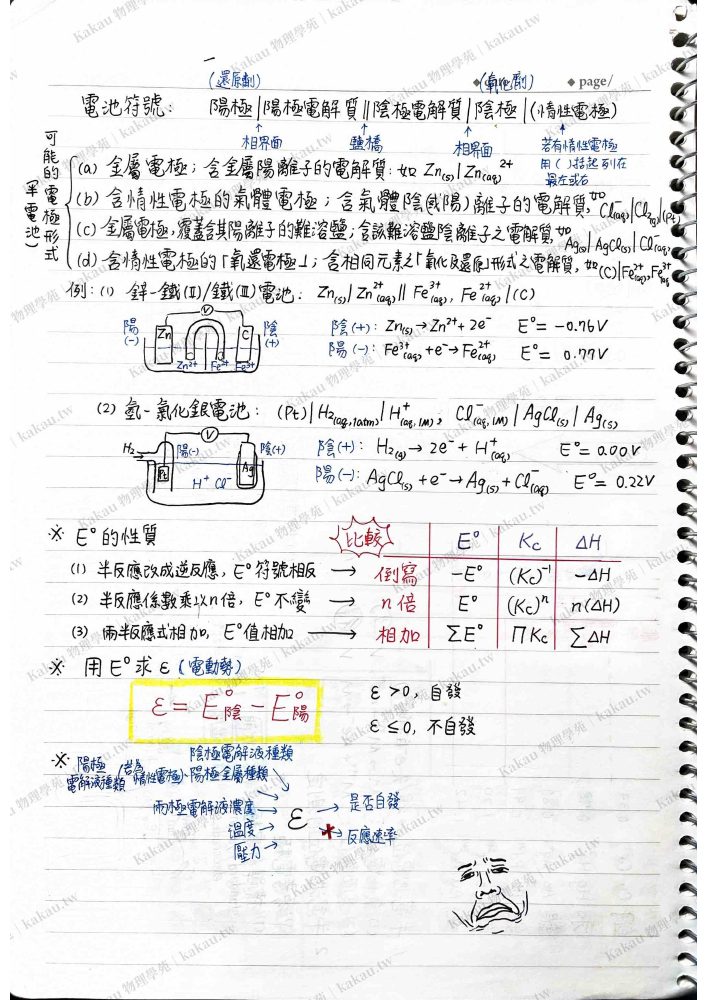 (還原劑) (氧化劑) ◆ page/
電池符號: 陽極|陽極電解質||陰極電解質|陰極|(惰性電極)
相界面 鹽橋 相界面 若有惰性電極
用()括起列在
最左或右
可能的電極形式
(半電池)
(a) 金屬電極;含金屬陽離子的電解質:如 Zn(s)|Zn²⁺(aq)
(b) 含惰性電極的氣體電極;含氣體陰(或陽)離子的電解質,如 Cl⁻(aq)|Cl₂(g)|(Pt)
(c) 金屬電極,覆蓋含其陽離子的難溶鹽;含該難溶鹽陰離子之電解質,如 Ag(s)|AgCl(s)|Cl⁻(aq)
(d) 含惰性電極的「氧還電極」;含相同元素之「氧化及還原」形式之電解質,如 (C)|Fe²⁺(aq),Fe³⁺(aq)
例:(1) 鋅-鐵(II)/鐵(III)電池: Zn(s)|Zn²⁺(aq)||Fe³⁺(aq), Fe²⁺(aq)|(C)
陽(-) Zn V C 陰(+)
Zn²⁺ Fe²⁺ Fe³⁺
陰(+): Zn(s)→Zn²⁺+2e⁻ E°= -0.76V
陽(-): Fe³⁺(aq)+e⁻→Fe²⁺(aq) E°= 0.77V
(2) 氫-氯化銀電池: (Pt)|H₂(aq,1atm)|H⁺(aq,1M), Cl⁻(aq,1M)|AgCl(s)|Ag(s)
H₂ 陽(-) V 陰(+)
Pt H⁺ Cl⁻ Ag
陰(+): H₂(g)→2e⁻+H⁺(aq) E°= 0.00V
陽(-): AgCl(s)+e⁻→Ag(s)+Cl⁻(aq) E°= 0.22V
※ E°的性質
比較 E° Kc ΔH
(1) 半反應改成逆反應, E°符號相反 → 倒寫 -E° (Kc)⁻¹ -ΔH
(2) 半反應係數乘以n倍, E°不變 → n倍 E° (Kc)ⁿ n(ΔH)
(3) 兩半反應式相加, E°值相加 → 相加 ΣE° ΠKc ΣΔH
※ 用E°求ε(電動勢)
ε = E°陰 - E°陽
ε>0, 自發
ε≤0, 不自發
※ 陽極電解液種類(若為惰性電極)、陽極金屬種類
陰極電解液種類
兩極電解液濃度
溫度
壓力
ε
→ 是否自發
→ 反應速率
Kakau 物理學苑 | kakau.tw